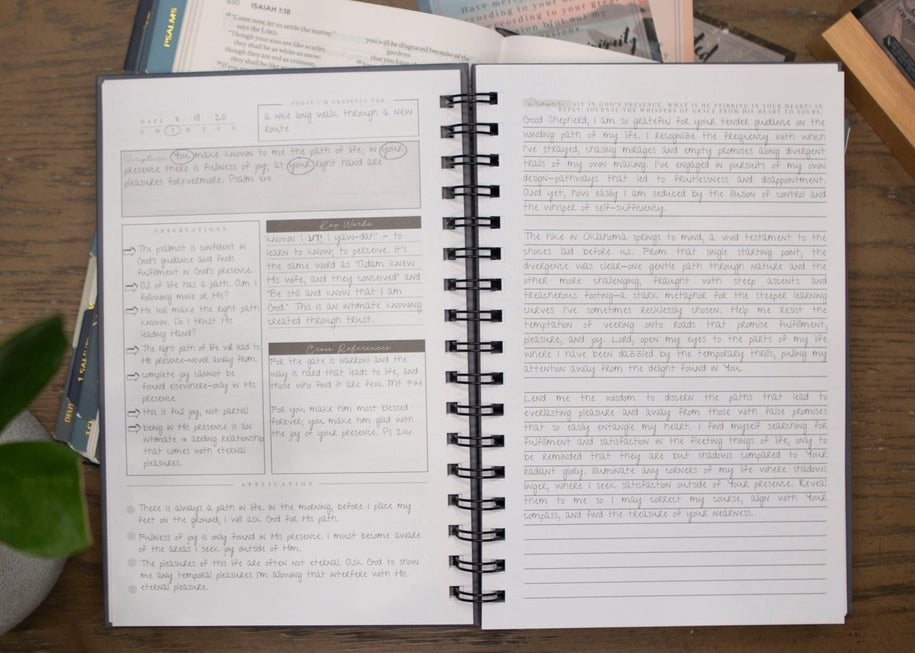 PSALMS
830
ISAIAH 1:18
"Come now, let us settle the matter,"
says the LORD.
"Though your sins are like scarlet,
they shall be as white as snow;
though they are red as crimson,
they shall be like
you will be disgraced because of the
gardens
that you have
Have mercy
according to your
according to your great
blot out my
DATE 8 · 18 · 20
S M T W T F S
TODAY I'M GRATEFUL FOR
a nice long walk through a new
route
Scripture You make known to me the path of life; in your
presence there is fullness of joy; at your right hand are
pleasures forevermore. Psalm 16:11
OBSERVATIONS
The psalmist is confident in
God's guidance and finds
fulfillment in God's presence.
All of life has a path. Am I
following mine or His?
He will make the right path
known. Do I trust His
leading Hand?
The right path of life will lead to
His presence-never away from.
complete joy cannot be
found elsewhere-only in His
presence
this is full joy, not partial
being in His presence is an
intimate & abiding relationship
that comes with eternal
pleasures.
Key Words
known: | ידע | yaw-dah' – to
learn to know; to perceive. It's
the same word as "Adam knew
His wife, and they conceived" and
"Be still and know that I am
God." This is an intimate knowing
created through trust.
Cross References
For the gate is narrow and the
way is hard that leads to life, and
those who find it are few. Mt 7:14
For you make him most blessed
forever; you make him glad with
the joy of your presence. Ps 21:6
APPLICATION
There is always a path in life. In the morning, before I place my
feet on the ground, I will ask God for His path.
Fullness of joy is only found in His presence. I must become aware
of the areas I seek joy outside of Him.
The pleasures of this life are often not eternal. Ask God to show
me any temporal pleasures I'm allowing that interfere with His
eternal pleasure.
Prayer SIT IN GOD'S PRESENCE. WHAT IS HE STIRRING IN YOUR HEART? IN
REPLY, JOURNAL THE WHISPERS OF GRACE FROM HIS HEART TO YOURS.
Good Shepherd, I am so grateful for your tender guidance on the
winding path of my life. I recognize the frequency with which
I've strayed, chasing mirages and empty promises along divergent
trails of my own making. I've engaged in pursuits of my own
design—pathways that led to fruitlessness and disappointment.
And yet, how easily I am seduced by the illusion of control and
the whisper of self-sufficiency.
The hike in Oklahoma springs to mind, a vivid testament to the
choices laid before us. From that single starting point, the
divergence was clear—one gentle path through nature and the
other more challenging, fraught with steep ascents and
treacherous footing—a stark metaphor for the steeper learning
curves I've sometimes recklessly chosen. Help me resist the
temptation of veering onto roads that promise fulfillment,
pleasure, and joy. Lord, open my eyes to the parts of my life
where I have been dazzled by the temporary thrills, pulling my
attention away from the delight found in You.
Lend me the wisdom to discern the paths that lead to
everlasting pleasure and away from those with false promises
that so easily entangle my heart. I find myself searching for
fulfillment and satisfaction in the fleeting things of life, only to
be reminded that they are but shadows compared to Your
radiant glory. Illuminate any corners of my life where shadows
linger, where I seek satisfaction outside of Your presence. Reveal
them to me so I may correct my course, align with Your
compass, and find the treasure of your nearness.